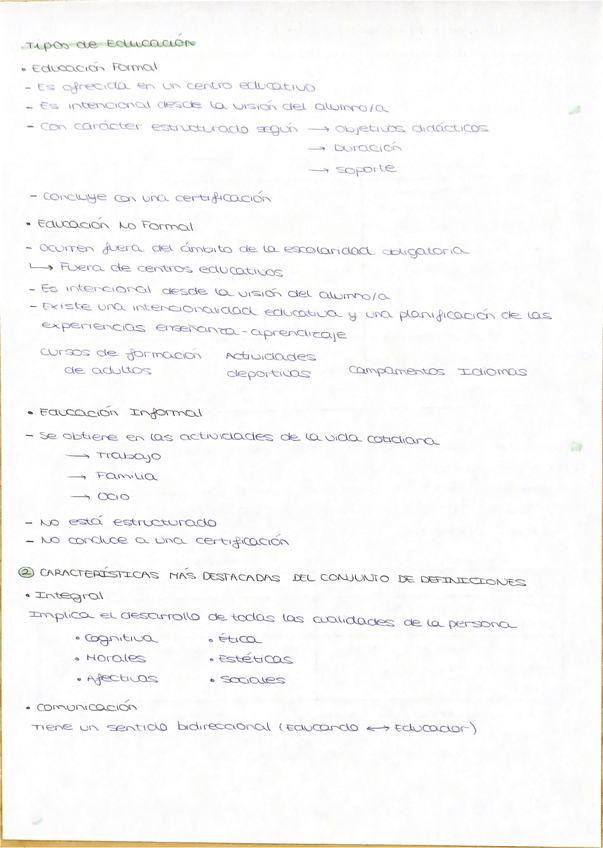 Tipos de Educación
• Educación Formal
- Es ofrecida en un centro educativo
- Es intencional desde la visión del alumno/a
- Con carácter estructurado según → objetivos didácticos
→ Duración
→ soporte
- Concluye con una certificación
• Educación No Formal
- Ocurren fuera del ámbito de la escolaridad obligatoria
↳ Fuera de centros educativos
- Es intencional desde la visión del alumno/a
- Existe una intencionalidad educativa y una planificación de las
experiencias enseñanza-aprendizaje
Cursos de formación Actividades
de adultos deportivas Campamentos Idiomas
• Educación Informal
- Se obtiene en las actividades de la vida cotidiana
→ Trabajo
→ Familia
→ Ocio
- No está estructurado
- No conduce a una certificación
② CARACTERÍSTICAS MÁS DESTACADAS DEL CONJUNTO DE DEFINICIONES
• Integral
Implica el desarrollo de todas las cualidades de la persona
• Cognitiva • Ética
• Morales • Estéticas
• Afectivas • Sociales
• Comunicación
Tiene un sentido bidireccional (Educando ↔ Educador)